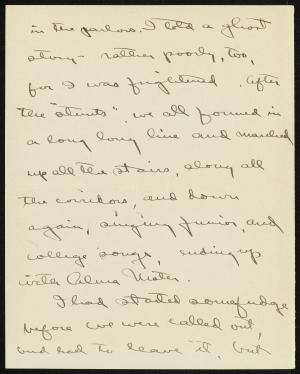 in the parlors. I told a ghost
story - rather poorly, too,
for I was frightened. After
the "stunts", we all formed in
a long long line and marched
up all the stairs, along all
the corridors, and down
again, singing Junior, and
college songs, ending up
with Alma Mater.
I had started some fudge
before we were called out,
and had to leave it, but